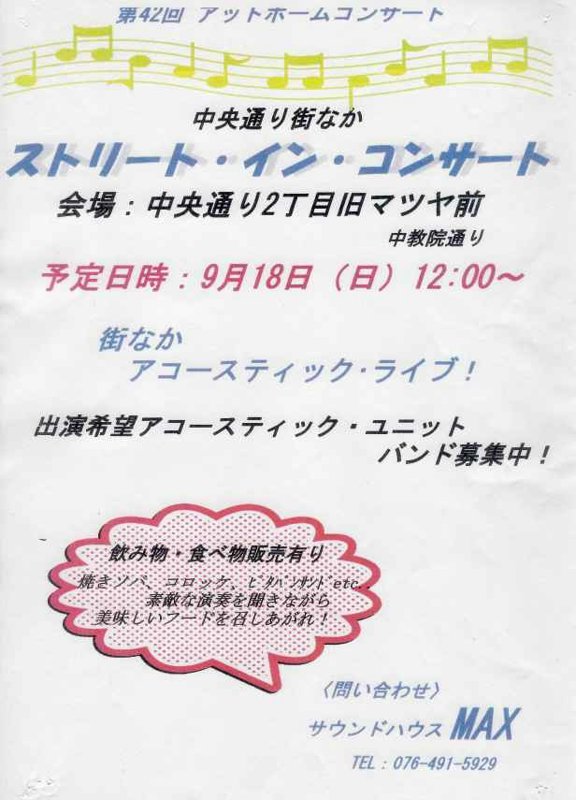 第42回 アットホームコンサート
中央通り街なか
ストリート・イン・コンサート
会場：中央通り2丁目旧マツヤ前
中教院通り
予定日時：9月18日（日）12:00～
街なか
アコースティック・ライブ！
出演希望アコースティック・ユニット
バンド募集中！
飲み物・食べ物販売有り
焼きソバ、コロッケ、ﾋﾟﾀﾊﾟﾝｻﾝﾄﾞetc..
素敵な演奏を聞きながら
美味しいフードを召しあがれ！
〈問い合わせ〉
サウンドハウス MAX
TEL：076-491-5929